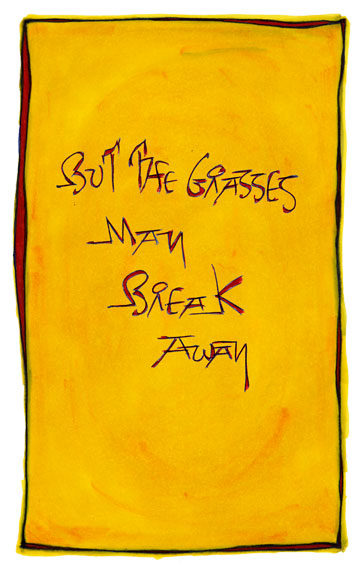 BUT THE GRASSES
MAY
BREAK
AWAY